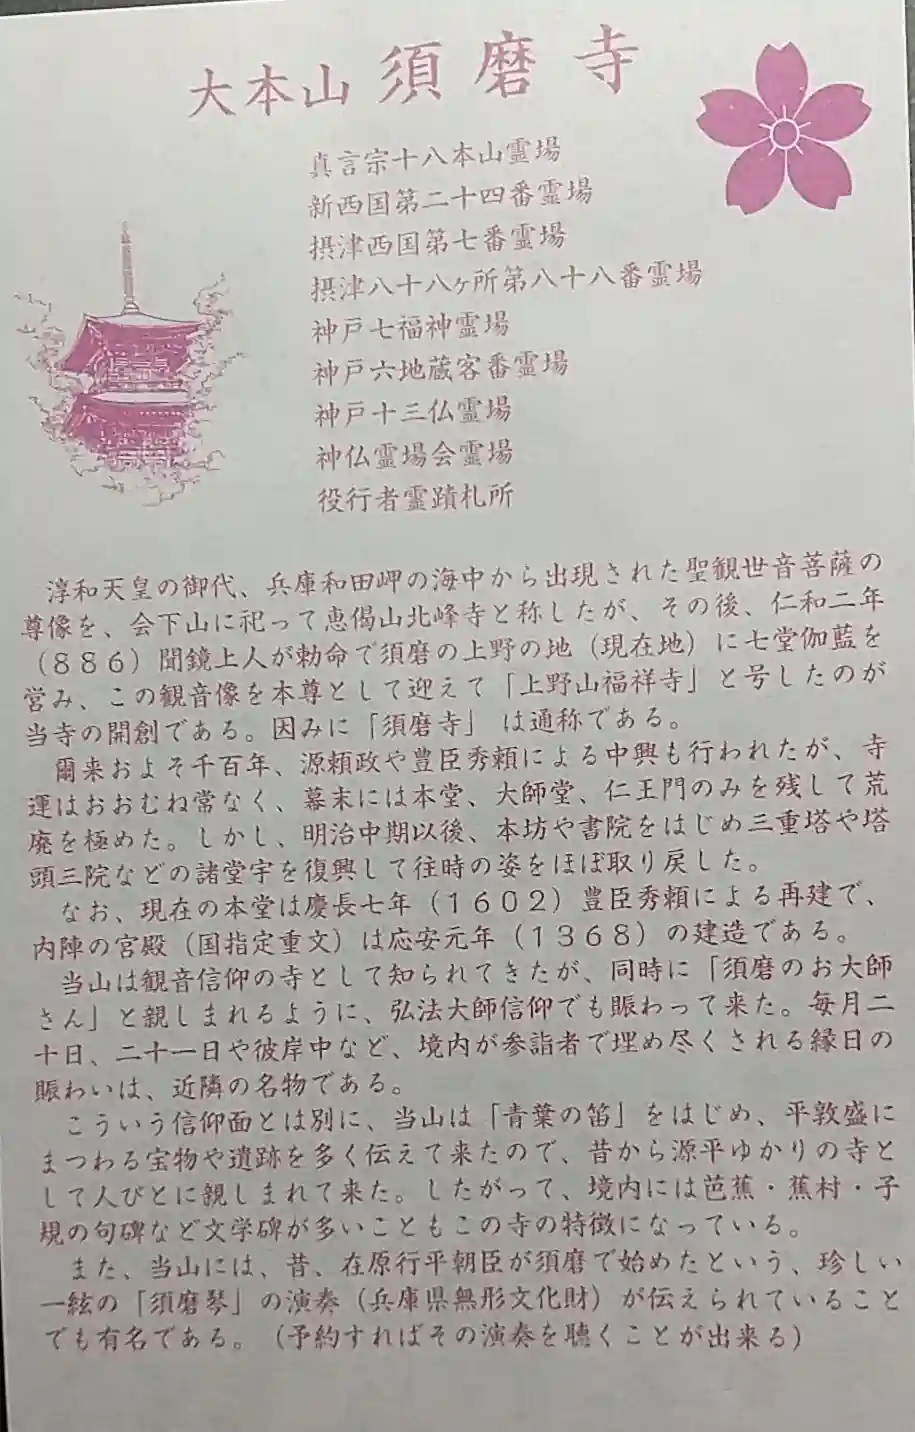 大本山 須磨寺
真言宗十八本山霊場
新西国第二十四番霊場
摂津西国第七番霊場
摂津八十八ヶ所第八十八番霊場
神戸七福神霊場
神戸六地蔵客番霊場
神戸十三仏霊場
神仏霊場会霊場
役行者霊蹟札所
淳和天皇の御代、兵庫和田岬の海中から出現された聖観世音菩薩の
尊像を、会下山に祀って恵偈山北峰寺と称したが、その後、仁和二年
（８８６）聞鏡上人が勅命で須磨の上野の地（現在地）に七堂伽藍を
営み、この観音像を本尊として迎えて「上野山福祥寺」と号したのが
当寺の開創である。因みに「須磨寺」は通称である。
爾来およそ千百年、源頼政や豊臣秀頼による中興も行われたが、寺
運はおおむね常なく、幕末には本堂、大師堂、仁王門のみを残して荒
廃を極めた。しかし、明治中期以後、本坊や書院をはじめ三重塔や塔
頭三院などの諸堂宇を復興して往時の姿をほぼ取り戻した。
なお、現在の本堂は慶長七年（１６０２）豊臣秀頼による再建で、
内陣の宮殿（国指定重文）は応安元年（１３６８）の建造である。
当山は観音信仰の寺として知られてきたが、同時に「須磨のお大師
さん」と親しまれるように、弘法大師信仰でも賑わって来た。毎月二
十日、二十一日や彼岸中など、境内が参詣者で埋め尽くされる縁日の
賑わいは、近隣の名物である。
こういう信仰面とは別に、当山は「青葉の笛」をはじめ、平敦盛に
まつわる宝物や遺跡を多く伝えて来たので、昔から源平ゆかりの寺と
して人びとに親しまれて来た。したがって、境内には芭蕉・蕉村・子
規の句碑など文学碑が多いこともこの寺の特徴になっている。
また、当山には、昔、在原行平朝臣が須磨で始めたという、珍しい
一絃の「須磨琴」の演奏（兵庫県無形文化財）が伝えられていること
でも有名である。（予約すればその演奏を聴くことが出来る）